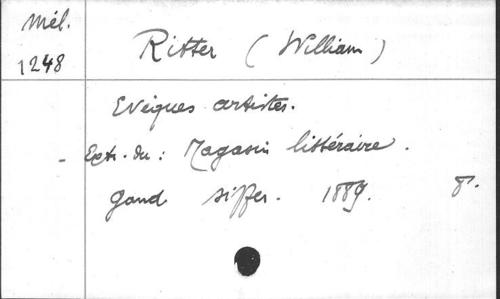 Mél.
1248
Ritter (William)
Evêques artistes.
- Extr. du : Magasin littéraire.
Gand Siffer. 1889. 8°.